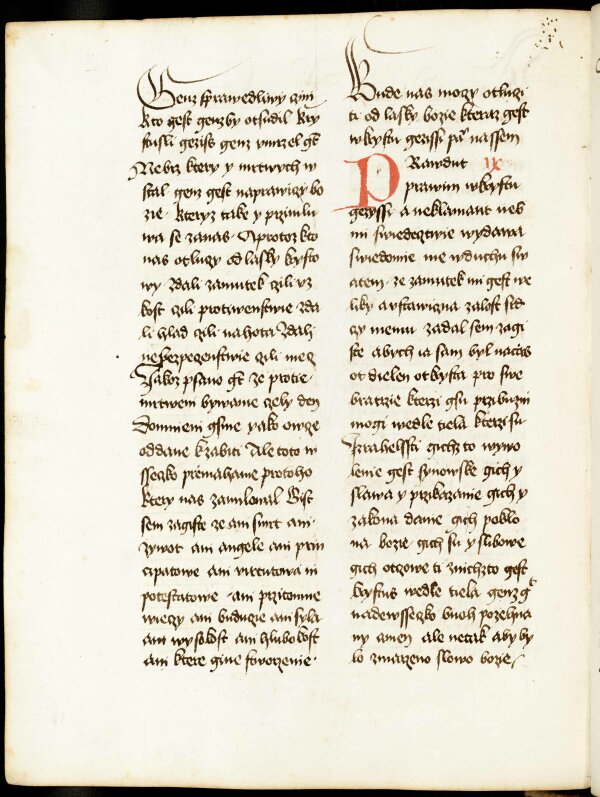 Genz sprawedliwy czini
kto gest genz by otsudil kry
stusli gezis genz umrzel gt
Nebrz ktery y mrtwych w
stal genz gest naprawiczy bo
zie kteryz take y przimlu
wa se zanas Aprotoz kto
nas otluczy od lasky krysto
wy zdali zamutek czili uz
kost czili protiwenstwie zda
li hlad czili nahota zdali
nebezpeczenstwie czili mecz
Jakoz psano gt ze protie
mrtweni bywame czely den
Domnieni gsme yako owcze
oddane k zabiti Ale toto w
sseczko premahame protoho
ktery nas zamilowal Gist
sem zagiste ze ani smrt ani
zywot ani angele ani prin
cipatowe ani virtutowa ni
potestatowe ani przitomne
wieczy ani buducie ani syla
ani wysokost ani hlubokost
ani ktere gine stworzenie
Bude nas moczy otlucziti
ti od lasky bozie kteraz gest
w krystu gezissi pa nassem
PRawdut ix
prawim w krystu
gezyssi a neklamam neb
mi swiedecztwie wydawa
swiedomie me w duchu sw
atem ze zamutek mi gest we
liky a ustawiczna zalost srd
czy memu zadal sem zagi
ste abych ia sam byl naczas
ot dielen ot krysta pro swe
bratrzie kterzi gsu przibuzni
mogi wedle tiela kterzi su
Izrahelssti gichz to wywo
lenie gest synowske gich y
slawa y przikazanie gich y
zakona danie gich poklo
na bozie gich su y slibowe
gich otczowe ti z nichzto gest
krystus wedle tiela genz gt
nadewsseczko buoh pozehna
ny amen ale netak aby by
lo zmarzeno slowo bozie